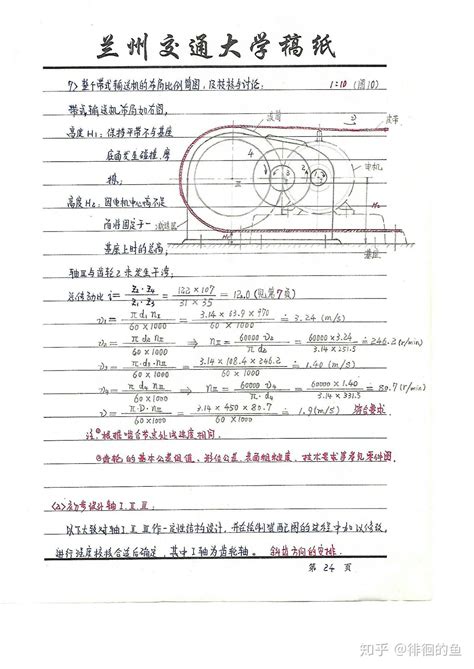 兰州交通大学稿纸
7> 整个带式输送机的布局比例简图，及校核与讨论: 1:10 (图10)
带式输送机布局如右图，
皮筒
皮带
高度 H₁: 保持平带不与基座
底面发生碰撞、摩
擦；
电机
高度 H₂: 因电机中心高不足
而将固定于一
减速器
基座上时的总高；
基座
轴Ⅲ与齿轮2未发生干涉；
总传动比 i = Z₂·Z₄ / Z₁·Z₃ = 122×107 / 31×35 = 12.0 (见第7页)
v₁ = πd₁n₁ / 60×1000 = 3.14×63.9×970 / 60×1000 ≐ 3.24 (m/s)
v₂ = πd₂nⅡ / 60×1000 ⇒ nⅡ = 60000v₂ / πd₂ = 60000×3.24 / 3.14×251.5 ≐ 246.2 (r/min)
v₃ = πd₃nⅡ / 60×1000 = 3.14×108.4×246.2 / 60×1000 ≐ 1.40 (m/s)
v₄ = πd₄nⅢ / 60×1000 ⇒ nⅢ = 60000v₄ / π·d₄ = 60000×1.40 / 3.14×331.5 ≐ 80.7 (r/min)
v = π·D·nⅢ / 60×1000 = 3.14×450×80.7 / 60×1000 ≐ 1.9 (m/s) 符合要求。
注: ①根据啮合节点处线速度相同。
②齿轮的基本公差值、形位公差、表面粗糙度、技术要求等见零件图。
<2> 初步设计轴Ⅰ、Ⅱ、Ⅲ:
以下大致对轴Ⅰ、Ⅱ、Ⅲ作一定性结构设计，并在绘制装配图的过程中加以修改，
进行强度校核合适后确定，其中Ⅰ轴为齿轮轴。 斜齿方向的安排
第 24 页
知乎 @徘徊的鱼